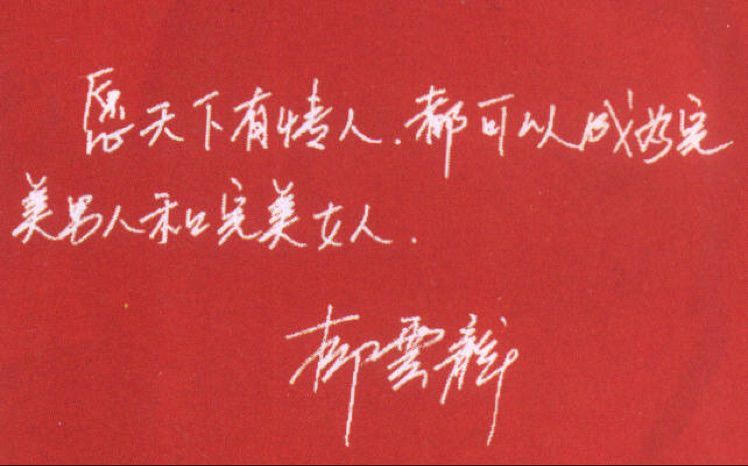 愿天下有情人.都可以成为完
美男人和完美女人.
郁雲龍